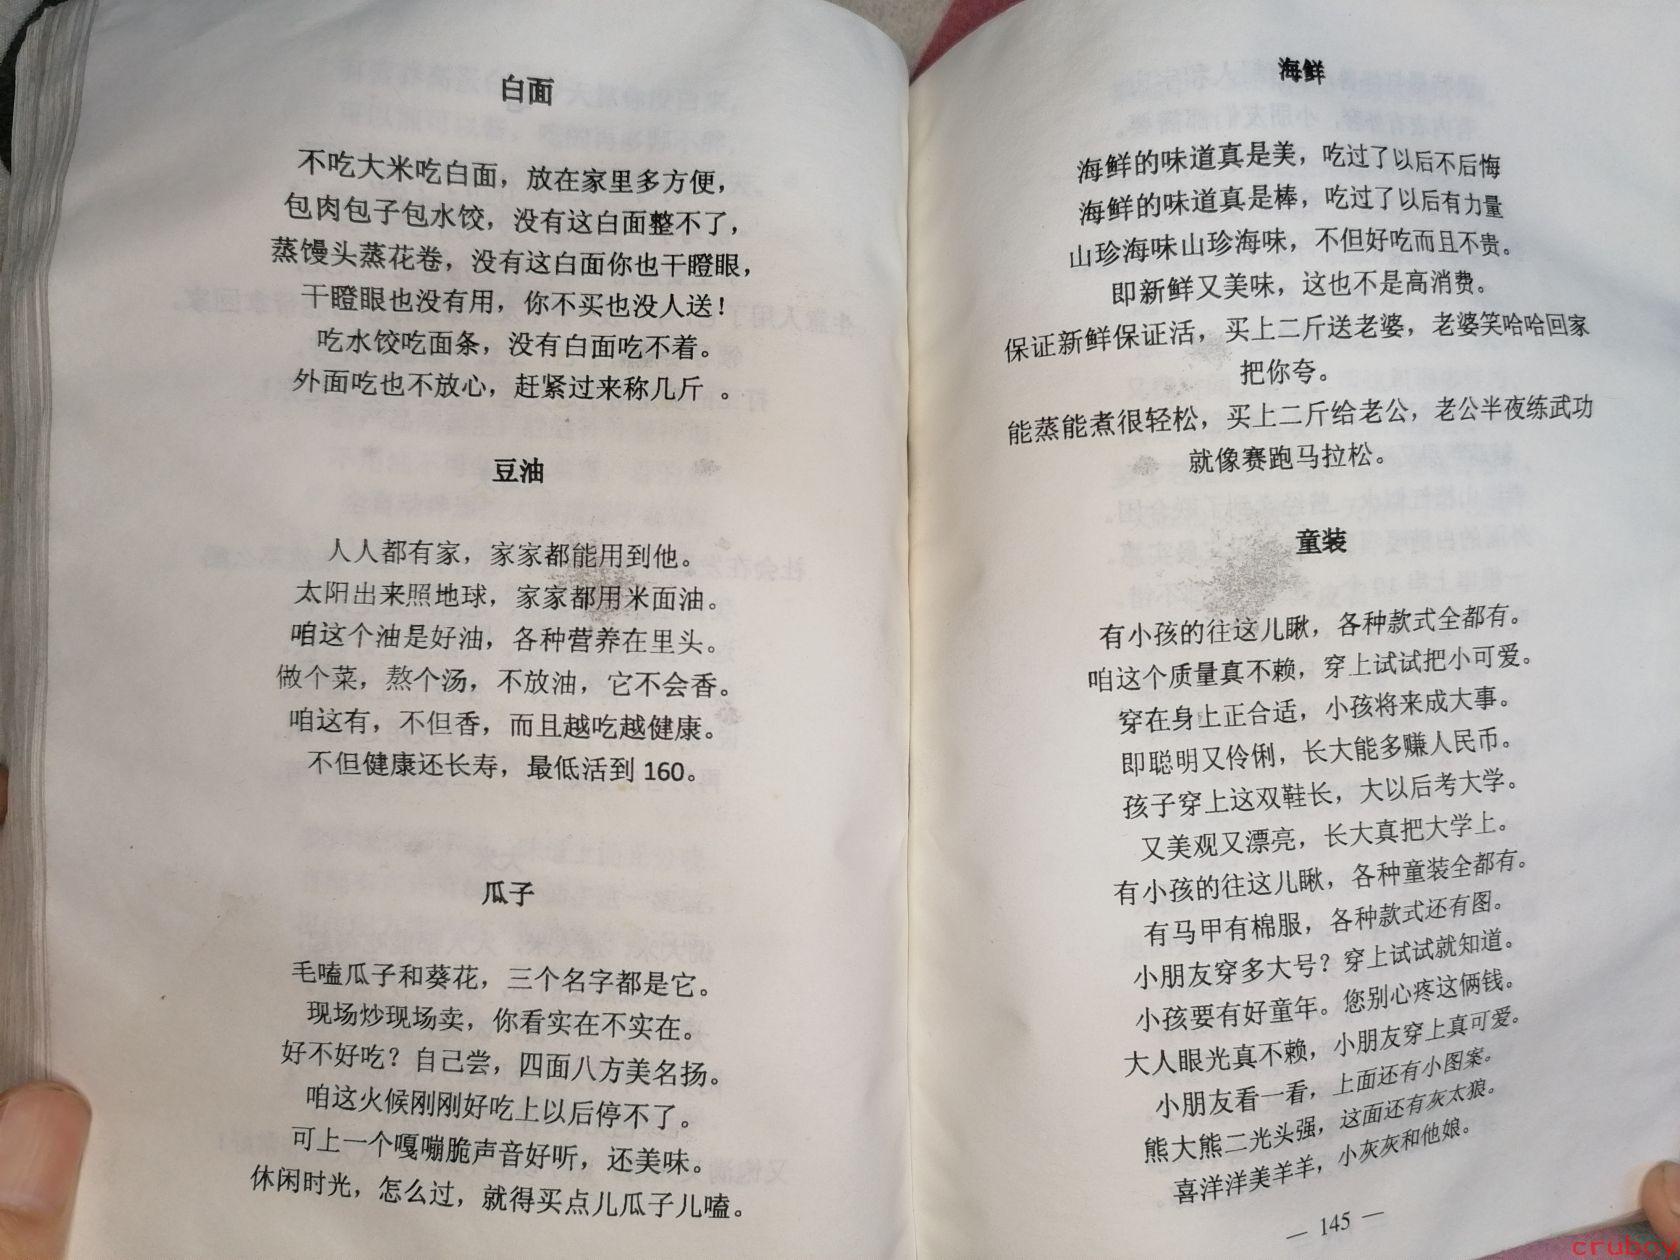 白面
不吃大米吃白面，放在家里多方便，
包肉包子包水饺，没有这白面整不了，
蒸馒头蒸花卷，没有这白面你也干瞪眼，
干瞪眼也没有用，你不买也没人送！
吃水饺吃面条，没有白面吃不着。
外面吃也不放心，赶紧过来称几斤 。
豆油
人人都有家，家家都能用到他。
太阳出来照地球，家家都用米面油。
咱这个油是好油，各种营养在里头。
做个菜，熬个汤，不放油，它不会香。
咱这有，不但香，而且越吃越健康。
不但健康还长寿，最低活到 160。
瓜子
毛嗑瓜子和葵花，三个名字都是它。
现场炒现场卖，你看实在不实在。
好不好吃？自己尝，四面八方美名扬。
咱这火候刚刚好吃上以后停不了。
可上一个嘎嘣脆声音好听，还美味。
休闲时光，怎么过，就得买点儿瓜子儿嗑。
海鲜
海鲜的味道真是美，吃过了以后不后悔
海鲜的味道真是棒，吃过了以后有力量
山珍海味山珍海味，不但好吃而且不贵。
即新鲜又美味，这也不是高消费。
保证新鲜保证活，买上二斤送老婆，老婆笑哈哈回家
把你夸。
能蒸能煮很轻松，买上二斤给老公，老公半夜练武功
就像赛跑马拉松。
童装
有小孩的往这儿瞅，各种款式全都有。
咱这个质量真不赖，穿上试试把小可爱。
穿在身上正合适，小孩将来成大事。
即聪明又伶俐，长大能多赚人民币。
孩子穿上这双鞋长，大以后考大学。
又美观又漂亮，长大真把大学上。
有小孩的往这儿瞅，各种童装全都有。
有马甲有棉服，各种款式还有图。
小朋友穿多大号？穿上试试就知道。
小孩要有好童年。您别心疼这俩钱。
大人眼光真不赖，小朋友穿上真可爱。
小朋友看一看，上面还有小图案。
熊大熊二光头强，这面还有灰太狼。
喜洋洋美羊羊，小灰灰和他娘。
— 145 —
cruboy